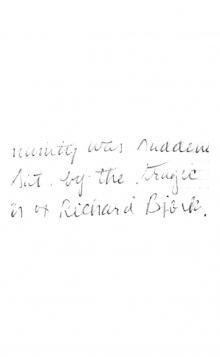 munity was sudden
hit by the tragic
of Richard Bjork.